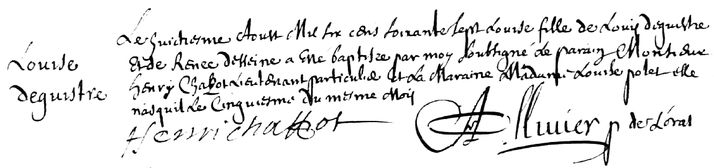 Louise
deguistre
Le huictiesme Aoust Mil six cens soixante sept Louise fille de Louis deguistre
et de Renee desseine a esté baptisée par moy soubsigné le parain Monsieur
henry Chabot Lieutenant particulier et La Maraine Madame Louise polet elle
nasquit Le Cinquiesme du mesme Mois
Henri chabbot
Ollivier p des Loras